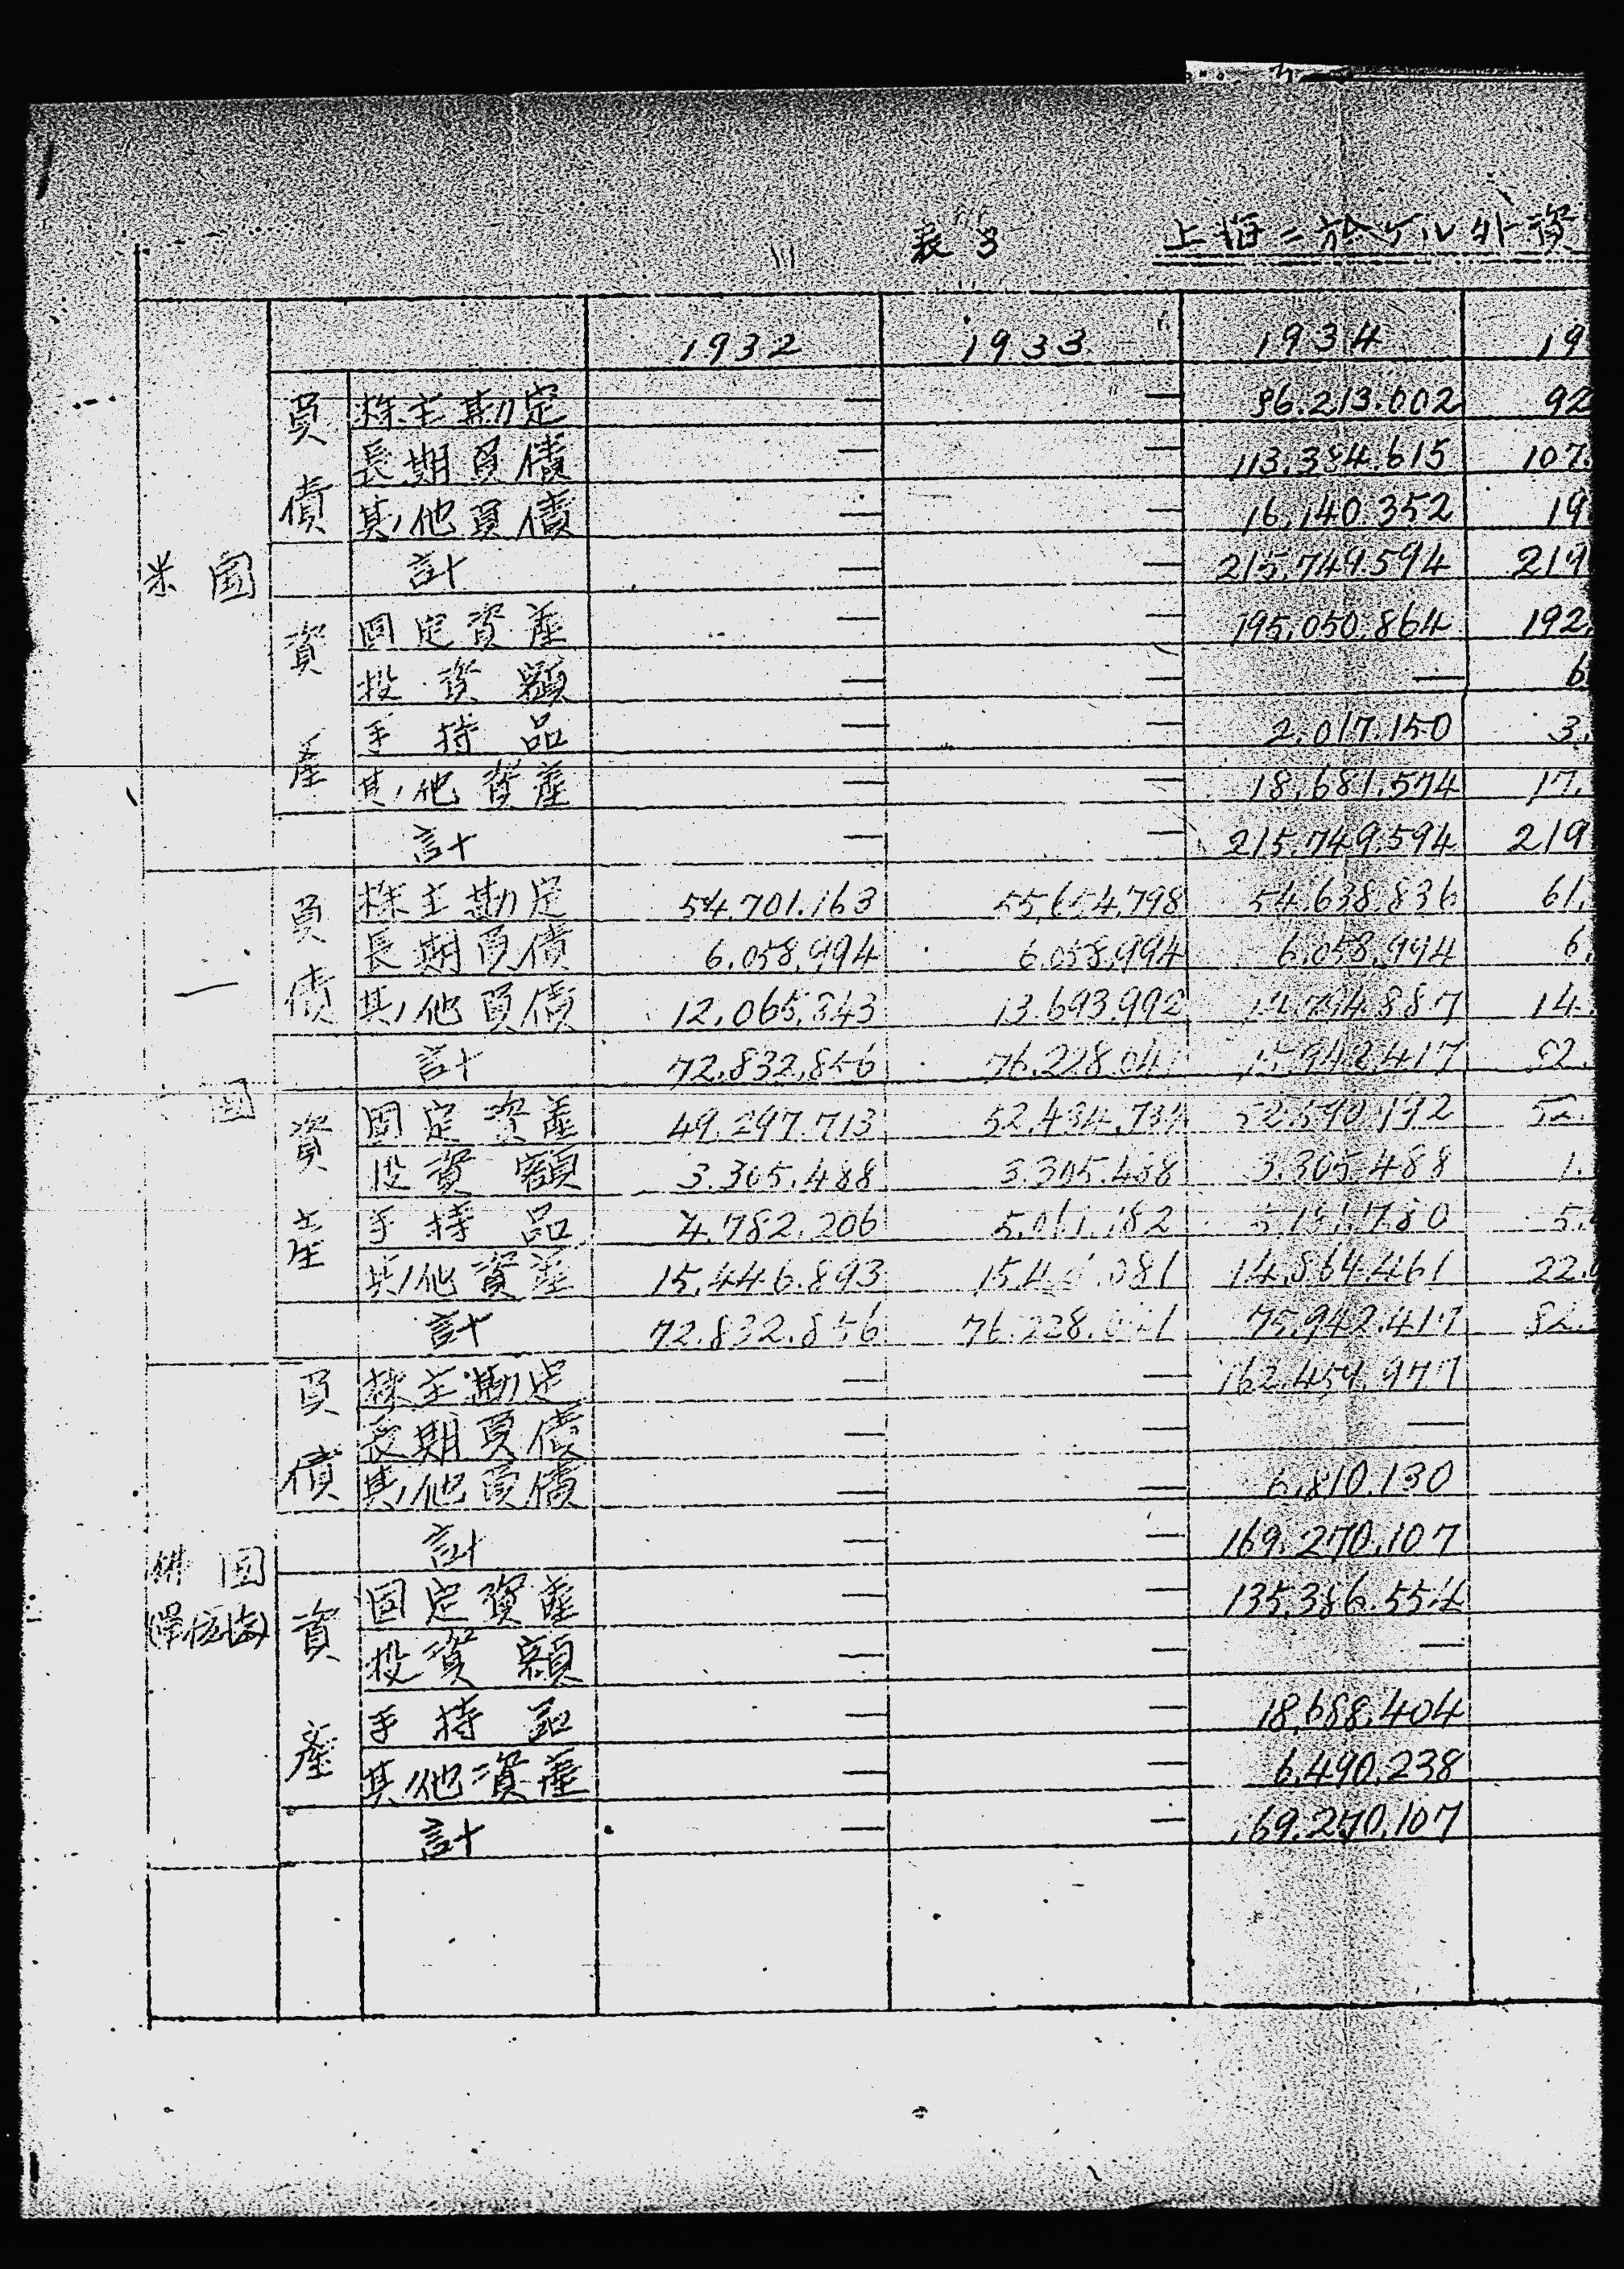 表3 上海ニ於ケル外資
1932 1933 1934 19
米国
負債
株主勘定 — — 86.213.002 92
長期負債 — — 113.384.615 107.
其ノ他負債 — — 16.140.352 19
計 — — 215.749.594 219
資産
固定資産 — — 195.050.864 192.
投資額 — — — 6.
手持品 — — 2.017.150 3.
其ノ他資産 — — 18.681.574 17.
計 — — 215.749.594 219
国
負債
株主勘定 54.701.163 4.798 54.638.836 61.
長期負債 6.058.994 6.058.994 6.058.994 6.
其ノ他負債 12.065.843 13.693.992 14.
計 72.832.856 76.228.04 942.417 2.
資産
固定資産 49.297.713 52.434.73 192 52.
投資額 3.305.488 3.305.488 3.305.488 1.
手持品 4.782.206 5.0 182 780 5.
其ノ他資産 15.446.893 15.4 .081 14.864.461 22.
計 72.832.856 76.228. 1 75.942.417 82.
佛国
負債
株主勘定 — — 162.459.977
長期負債 — — —
其ノ他負債 — — 6.810.130
計 — — 169.270.107
資産
固定資産 — — 135.386.554
投資額 — — —
手持品 — — 18.688.404
其ノ他資産 — — 6.490.238
計 — — 69.270.107